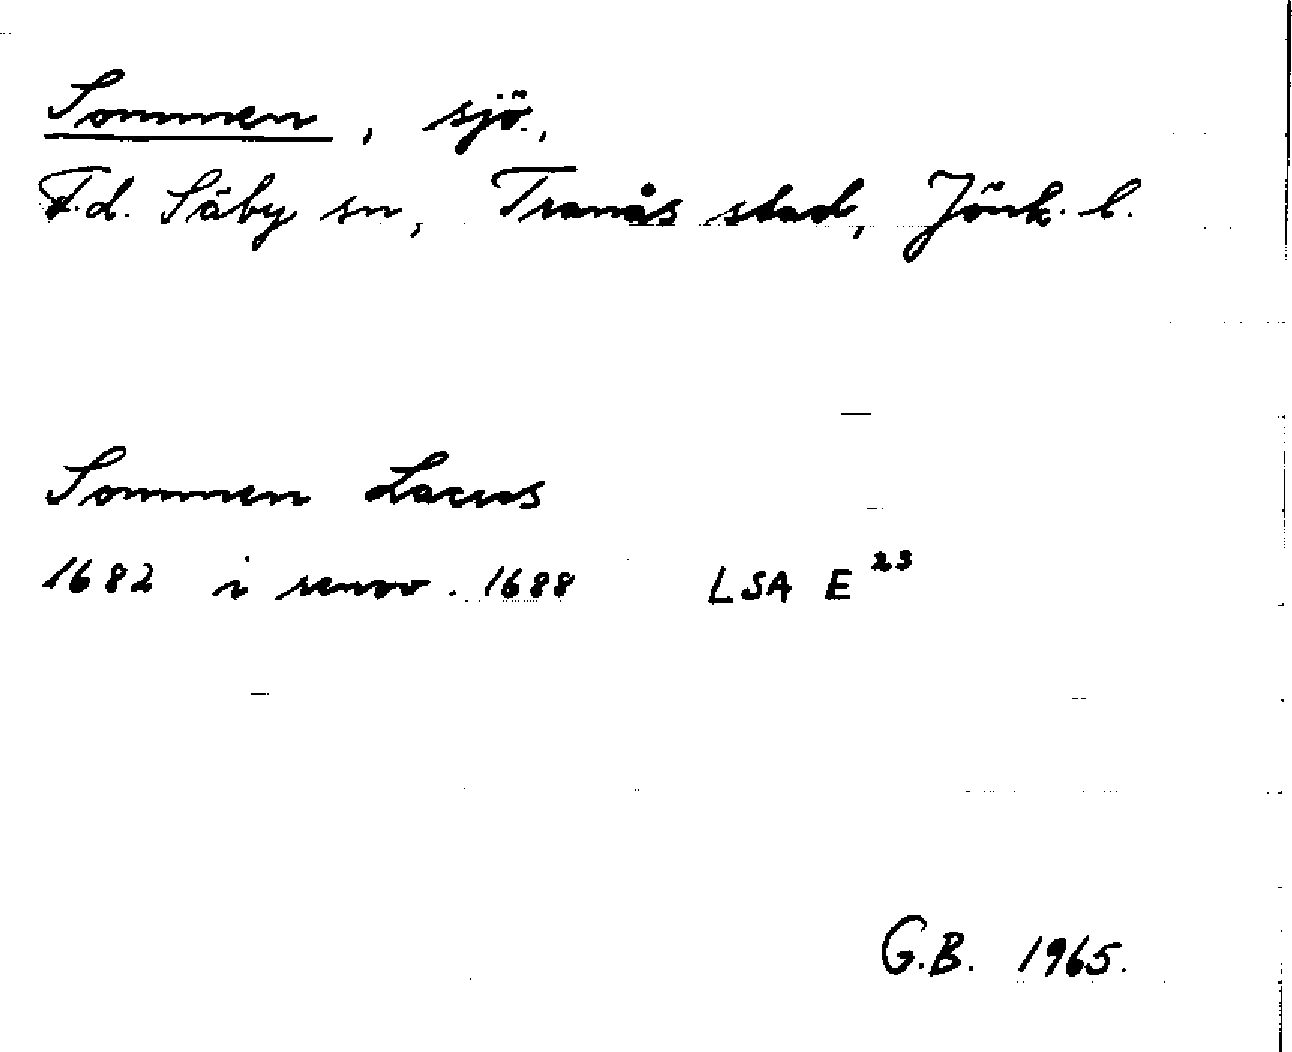 Sommen, sjö.,
F.d. Säby sn, Tranås stad, Jönk. l.
Sommen Lacus
1682 i renov. 1688 LSA E 23
G.B. 1965.